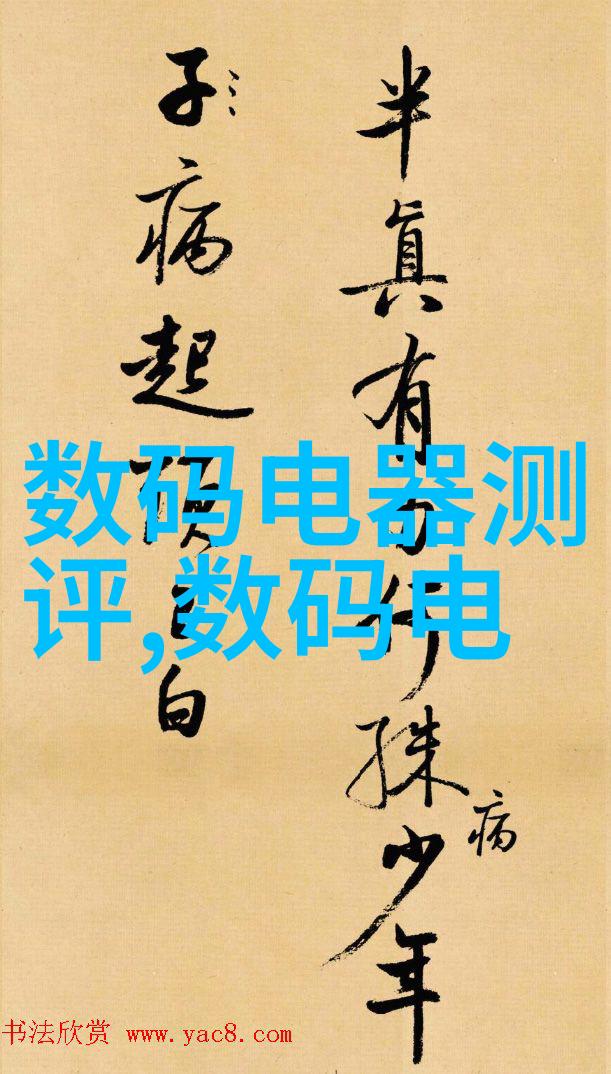 半真有行殊少年
病
子病起白
数码电器测
评,数码电
书法欣赏 www.yac8.com